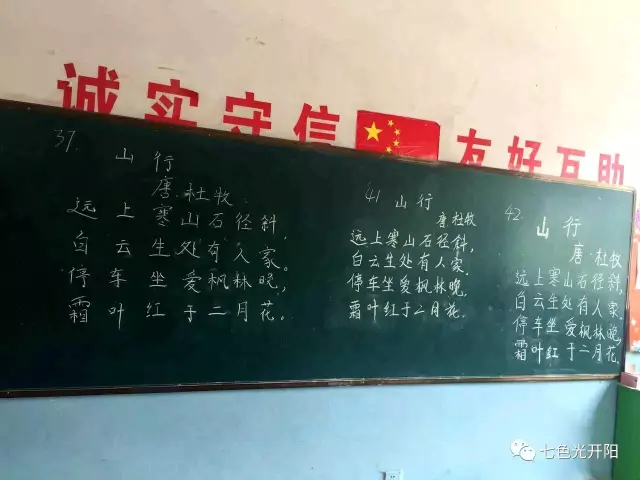 诚实守信 友好互助
37.
山行
唐 杜牧
远上寒山石径斜，
白云生处有人家。
停车坐爱枫林晚，
霜叶红于二月花。
41
山行
唐 杜牧
远上寒山石径斜，
白云生处有人家.
停车坐爱枫林晚，
霜叶红于二月花.
42.
山行
唐·杜牧
远上寒山石径斜，
白云生处有人家.
停车坐爱枫林晚，
霜叶红于二月花.
七色光开阳